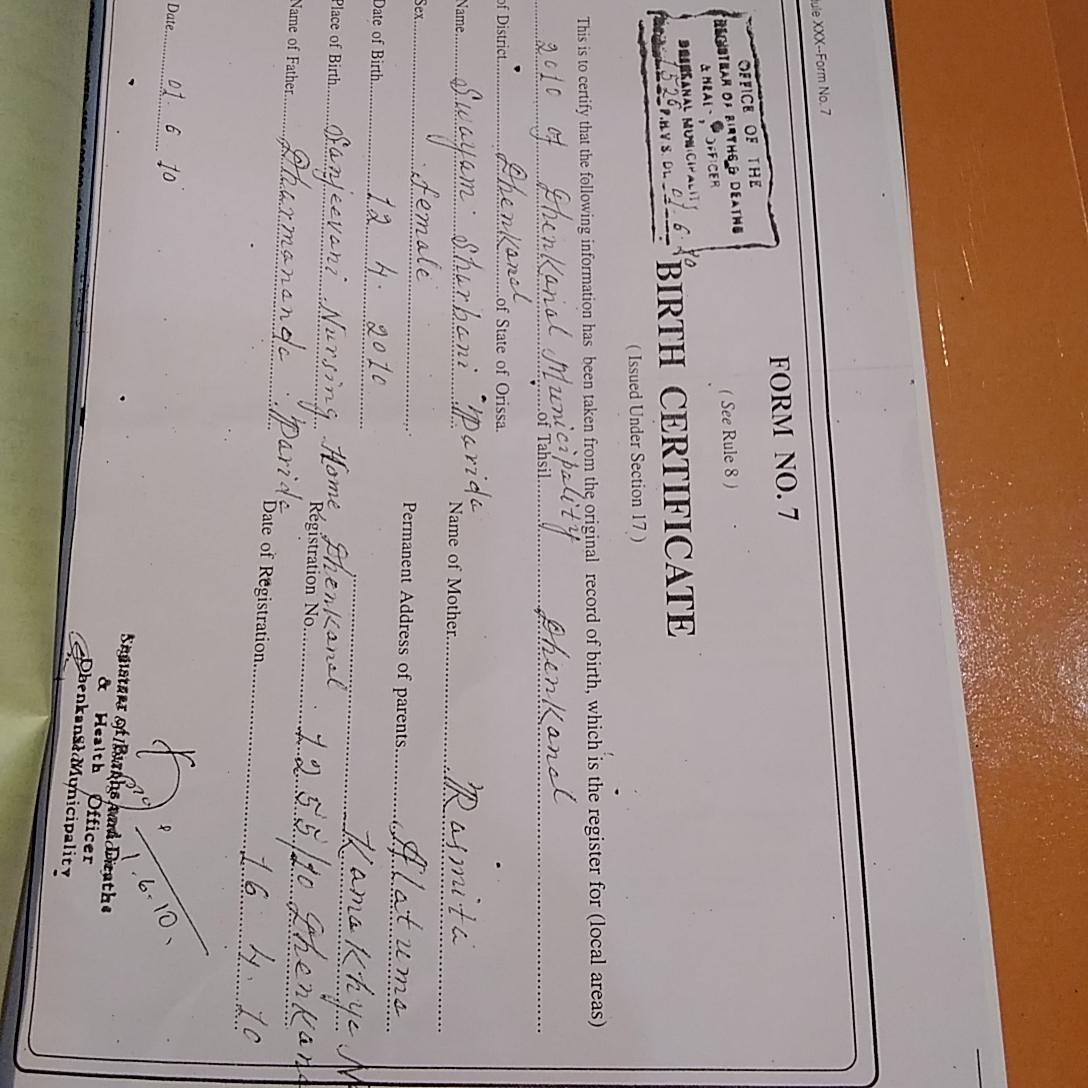 ule XXX--Form No. 7
FORM NO. 7
OFFICE OF THE
REGISTRAR OF BIRTHS & DEATHS
& HEALTH OFFICER
DHENKANAL MUNICIPALITY
1526 P.H.V.S. Dt. 01.6.10
( See Rule 8 )
BIRTH CERTIFICATE
( Issued Under Section 17 )
This is to certify that the following information has been taken from the original record of birth, which is the register for (local areas)
2010 of Dhenkanal Municipality of Tahsil Dhenkanal
of District Dhenkanal of State of Orissa.
Name Swayam Sharbani Parida Name of Mother Rasmita
Sex Female Permanent Address of parents Alatuma
Date of Birth 12. 4. 2010 Kamakhya N
Place of Birth Sanjeevani Nursing Home, Dhenkanal Registration No. 1255/10 Dhenkan
Name of Father Dharmananda Parida Date of Registration 16. 4. 10
Date 01. 6. 10
1.6.10.
Registrar of Births and Deaths
& Health Officer
Dhenkanal Municipality